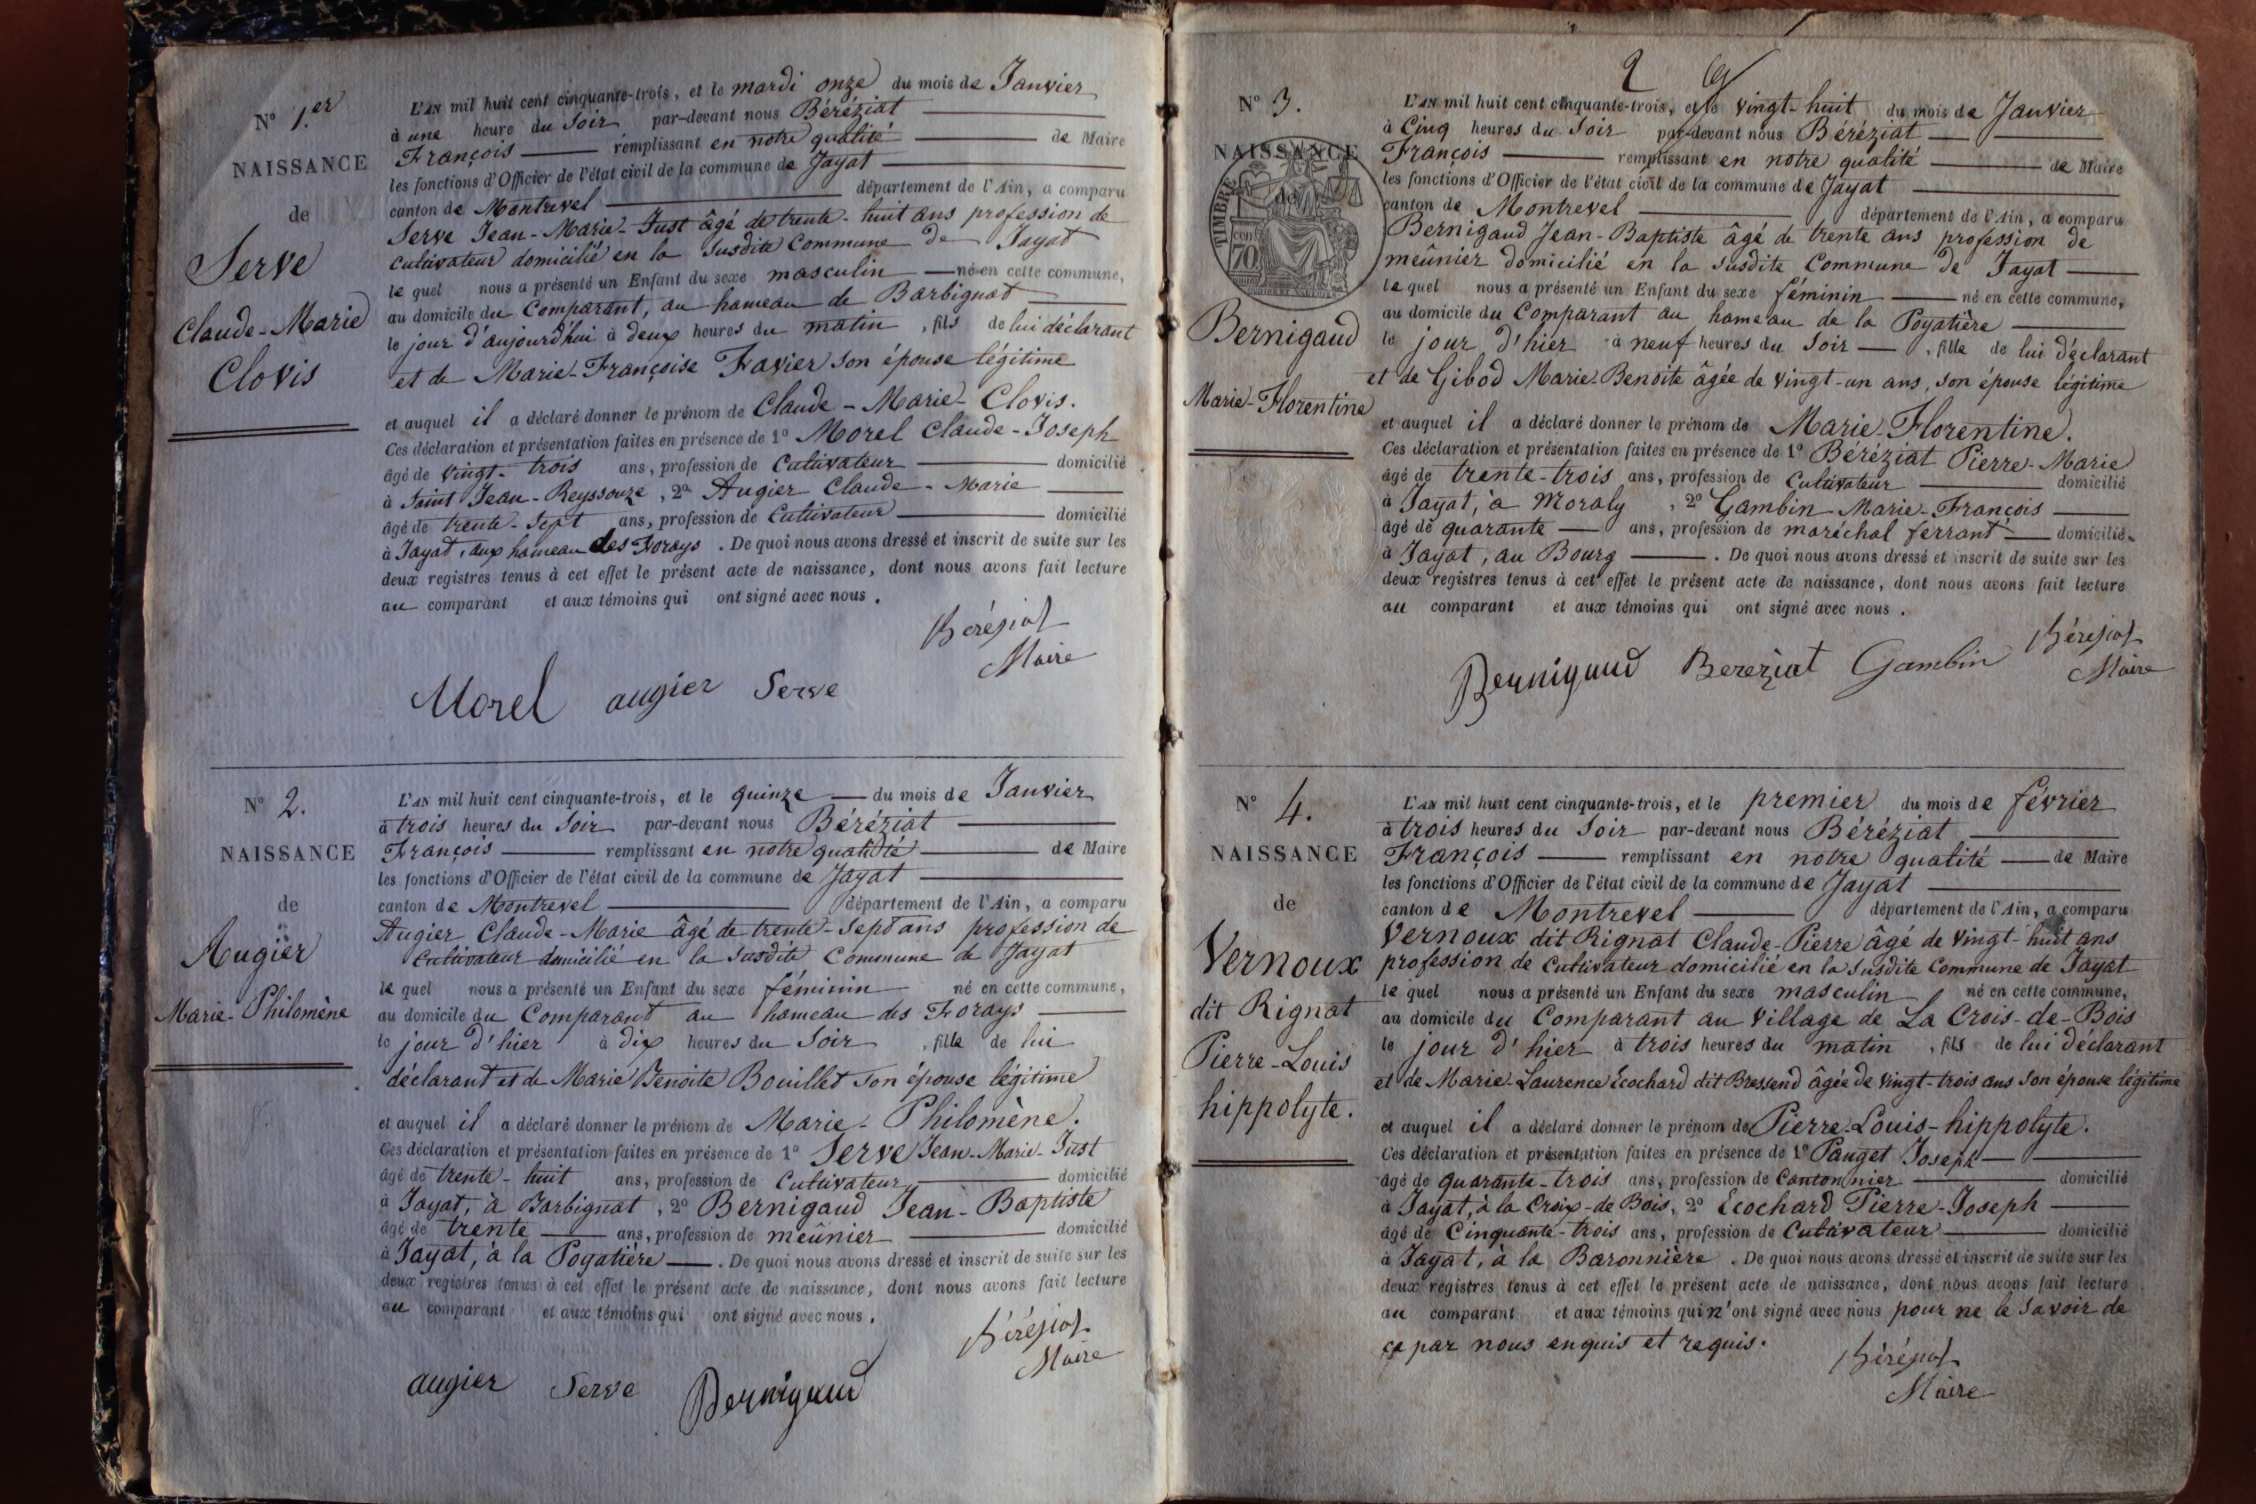 N° 1.er
NAISSANCE
de
Serve
Claude-Marie
Clovis
L'AN mil huit cent cinquante-trois, et le mardi onze du mois de Janvier
à une heure du Soir par-devant nous Béréziat
François remplissant en notre qualité de Maire
les fonctions d'Officier de l'état civil de la commune de Jayat
canton de Montrevel département de l'Ain, a comparu
Serve Jean-Marie-Just âgé de trente-huit ans profession de
cultivateur domicilié en la susdite Commune de Jayat
le quel nous a présenté un Enfant du sexe masculin né en cette commune,
au domicile du Comparant, au hameau de Barbignat
le jour d'aujourd'hui à deux heures du matin, fils de lui déclarant
et de Marie-Françoise Favier son épouse légitime
et auquel il a déclaré donner le prénom de Claude-Marie-Clovis.
Ces déclaration et présentation faites en présence de 1° Morel Claude-Joseph
âgé de vingt-trois ans, profession de Cultivateur domicilié
à Saint Jean-Reyssouze, 2° Augier Claude-Marie
âgé de trente-sept ans, profession de Cultivateur domicilié
à Jayat, aux hameau des Forays. De quoi nous avons dressé et inscrit de suite sur les
deux registres tenus à cet effet le présent acte de naissance, dont nous avons fait lecture
au comparant et aux témoins qui ont signé avec nous.
Béréziat
Maire
Morel augier Serve
N° 2.
NAISSANCE
de
Augier
Marie-Philomène
L'AN mil huit cent cinquante-trois, et le quinze du mois de Janvier
à trois heures du Soir par-devant nous Béréziat
François remplissant en notre qualité de Maire
les fonctions d'Officier de l'état civil de la commune de Jayat
canton de Montrevel département de l'Ain, a comparu
Augier Claude-Marie âgé de trente-sept ans profession de
Cultivateur domicilié en la susdite Commune de Jayat
le quel nous a présenté un Enfant du sexe féminin né en cette commune,
au domicile du Comparant au hameau des Forays
le jour d'hier à dix heures du Soir, fille de lui
déclarant et de Marie Benoite Bouillet son épouse légitime
et auquel il a déclaré donner le prénom de Marie-Philomène.
Ces déclaration et présentation faites en présence de 1° Serve Jean-Marie-Just
âgé de trente-huit ans, profession de Cultivateur domicilié
à Jayat, à Barbignat, 2° Bernigaud Jean-Baptiste
âgé de trente ans, profession de meûnier domicilié
à Jayat, à la Pogatière. De quoi nous avons dressé et inscrit de suite sur les
deux registres tenus à cet effet le présent acte de naissance, dont nous avons fait lecture
au comparant et aux témoins qui ont signé avec nous.
Béréziat
Maire
augier Serve Bernigaud
2
N° 3.
NAISSANCE
de
TIMBRE
70
Bernigaud
Marie-Florentine
L'AN mil huit cent cinquante-trois, et le vingt-huit du mois de Janvier
à Cinq heures du Soir par-devant nous Béréziat
François remplissant en notre qualité de Maire
les fonctions d'Officier de l'état civil de la commune de Jayat
canton de Montrevel département de l'Ain, a comparu
Bernigaud Jean-Baptiste âgé de trente ans profession de
meûnier domicilié en la susdite Commune de Jayat
le quel nous a présenté un Enfant du sexe féminin né en cette commune,
au domicile du Comparant au hameau de la Pogatière
le jour d'hier à neuf heures du Soir, fille de lui déclarant
et de Gibod Marie-Benoite âgée de vingt-un ans, son épouse légitime
et auquel il a déclaré donner le prénom de Marie-Florentine.
Ces déclaration et présentation faites en présence de 1° Béréziat Pierre-Marie
âgé de trente-trois ans, profession de Cultivateur domicilié
à Jayat, à Moraly, 2° Gambin Marie-François
âgé de quarante ans, profession de maréchal ferrant domicilié
à Jayat, au Bourg. De quoi nous avons dressé et inscrit de suite sur les
deux registres tenus à cet effet le présent acte de naissance, dont nous avons fait lecture
au comparant et aux témoins qui ont signé avec nous.
Béréziat
Maire
Bernigaud Bereziat Gambin
N° 4.
NAISSANCE
de
Vernoux
dit Rignat
Pierre-Louis
hippolyte.
L'AN mil huit cent cinquante-trois, et le premier du mois de février
à trois heures du Soir par-devant nous Béréziat
François remplissant en notre qualité de Maire
les fonctions d'Officier de l'état civil de la commune de Jayat
canton de Montrevel département de l'Ain, a comparu
Vernoux dit Rignat Claude-Pierre âgé de vingt-huit ans
profession de Cultivateur domicilié en la susdite Commune de Jayat
le quel nous a présenté un Enfant du sexe masculin né en cette commune,
au domicile du Comparant au village de La Crois-de-Bois
le jour d'hier à trois heures du matin, fils de lui déclarant
et de Marie-Laurence Ecochard dit Bressend âgée de vingt-trois ans son épouse légitime
et auquel il a déclaré donner le prénom de Pierre-Louis-hippolyte.
Ces déclaration et présentation faites en présence de 1° Pauget Joseph
âgé de quarante-trois ans, profession de Cantonnier domicilié
à Jayat, à la Croix-de Bois, 2° Ecochard Pierre-Joseph
âgé de Cinquante-trois ans, profession de Cultivateur domicilié
à Jayat, à la Baronnière. De quoi nous avons dressé et inscrit de suite sur les
deux registres tenus à cet effet le présent acte de naissance, dont nous avons fait lecture
au comparant et aux témoins qui n'ont signé avec nous pour ne le savoir de
ce par nous enquis et requis.
Béréziat
Maire